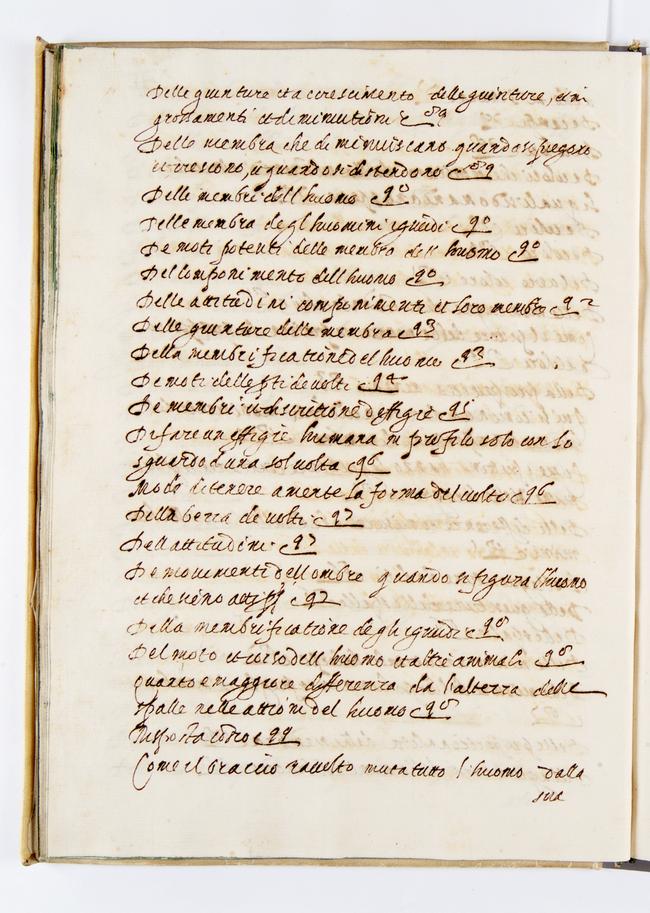 Delle giunture et accrescimento delle giunture, et in
grossamenti et diminutioni c 89
Delle membra che diminuiscano quando si piegano
et crescono, quando si distendono c 89
Delle membri dell huomo c 90
Delle membra degl huomini ignudi c 90
De moti potenti delle membra dell huomo c 90
Del componimento dell huomo c 90
Delle attitudini componimenti et loro membra c 92
Delle giunture delle membra c 93
Della membrificatione del huomo c 93
De moti delle de volti c 94
De membri et discritione d effigie c 95
Di fare un effigie humana in profilo solo con lo
sguardo d una sol volta c 96
Modo di tenere a mente la forma del volto c 96
Della de volti c 97
Dell attitudini c 97
De movimenti dell ombre quando si figura l huomo
et che sieno c 97
Della membrificatione degli ignudi c 98
Del moto et corso dell huomo et altri animali c 98
quanto e maggiore differenza da l alterza delle
spalle nelle attioni del huomo c 98
Risposta c 99
Come il braccio racolto muta tutto l huomo dalla
sua